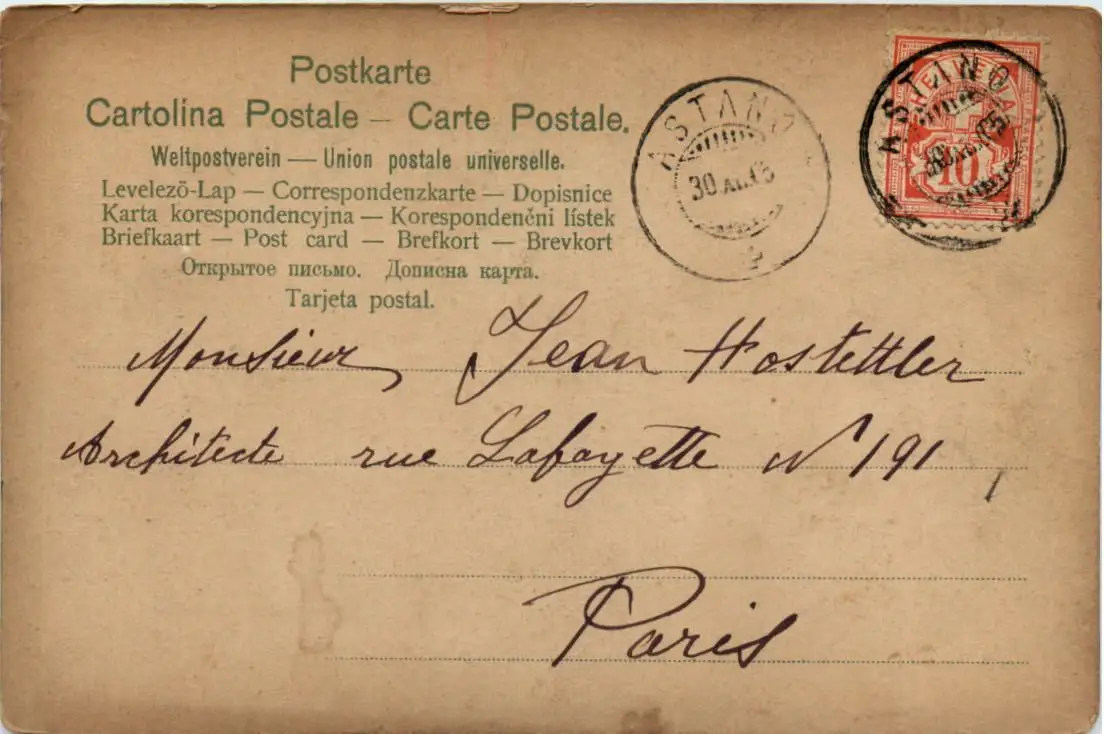 Postkarte
Cartolina Postale – Carte Postale.
Weltpostverein — Union postale universelle.
Levelezō-Lap — Correspondenzkarte — Dopisnice
Karta korespondencyjna — Korespondenčni lístek
Briefkaart — Post card — Brefkort — Brevkort
Открытое письмо. Дописна карта.
Tarjeta postal.
ASTANO
30 XII.05
HELVETIA
10
ASTANO
Monsieur Jean Hostettler
Architecte rue Lafayette N 191
Paris